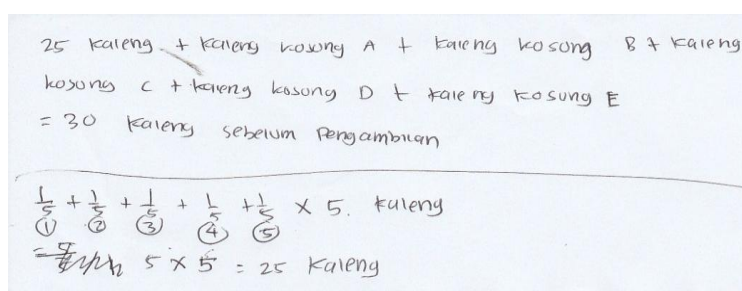 25 kaleng + kaleng kosong A + kaleng kosong B + kaleng
kosong C + kaleng kosong D + kaleng kosong E
= 30 kaleng sebelum pengambilan
1/5 + 1/5 + 1/5 + 1/5 + 1/5 × 5. kaleng
① ② ③ ④ ⑤
= 5 × 5 = 25 kaleng